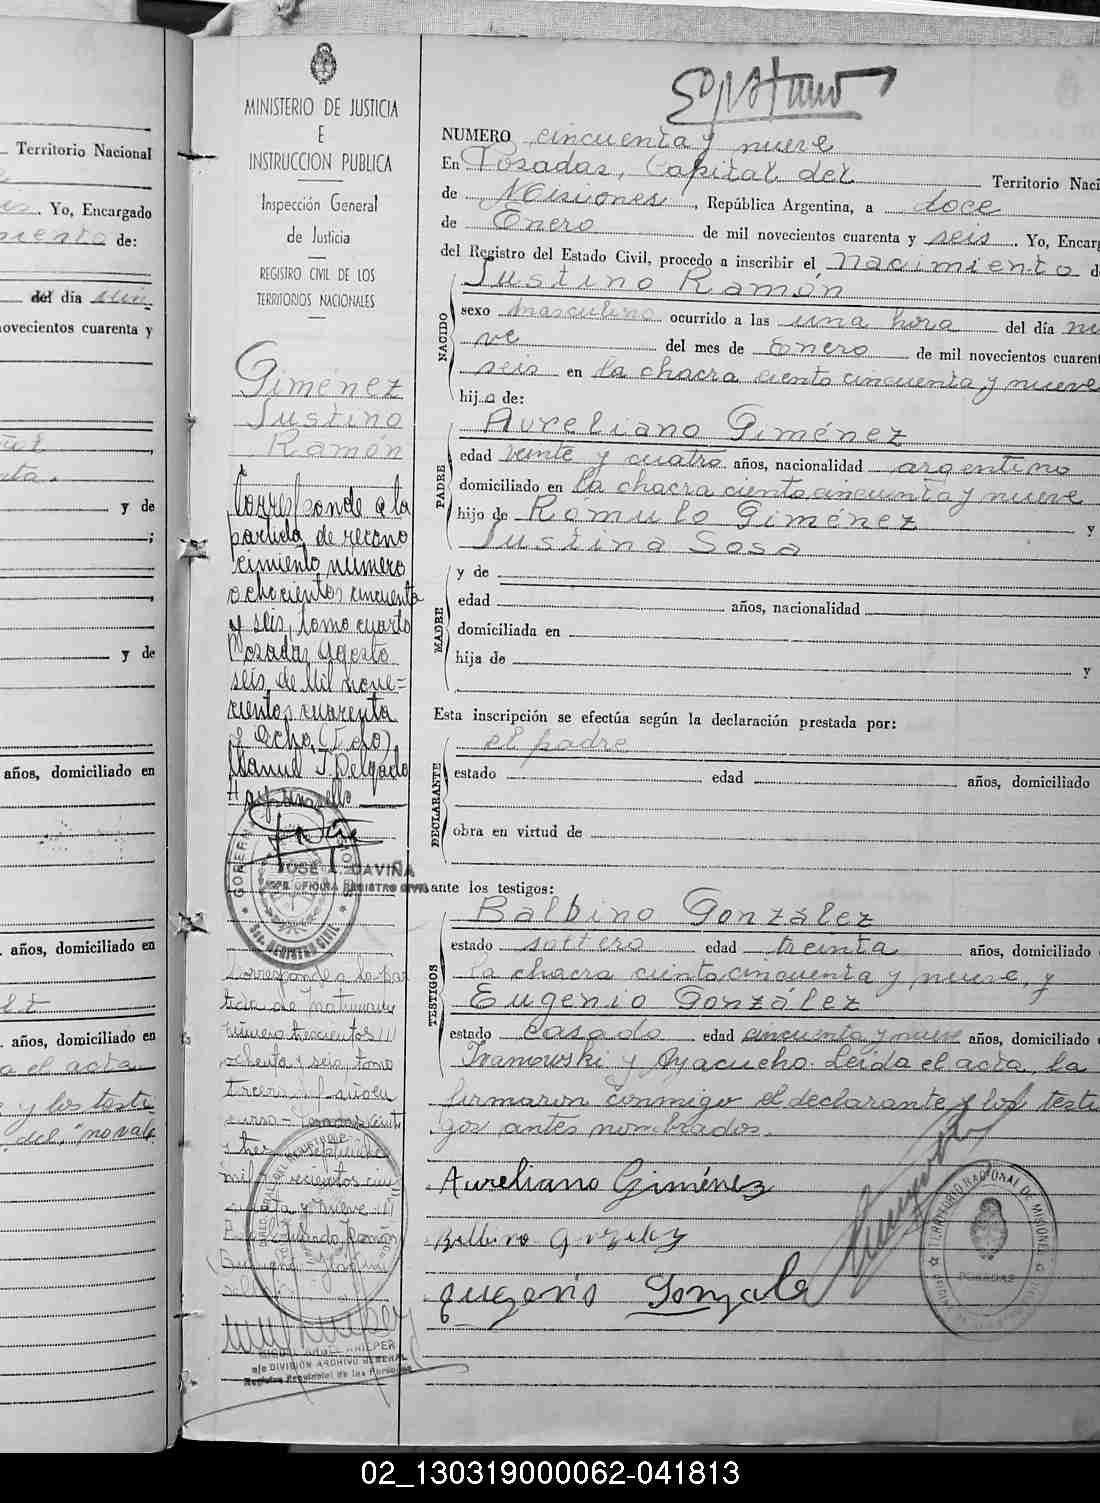 Territorio Nacional
Yo, Encargado
de:
del día
novecientos cuarenta y
y de
y de
años, domiciliado en
años, domiciliado en
años, domiciliado en
a el acta
y los testi
del "no vale
MINISTERIO DE JUSTICIA
E
INSTRUCCION PUBLICA
Inspección General
de Justicia
REGISTRO CIVIL DE LOS
TERRITORIOS NACIONALES
Giménez
Justino
Ramón
Corresponde a la
partida de recono
cimiento número
ochocientos cincuenta
y seis, tomo cuarto
Posadas Agosto
seis de mil nove=
cientos cuarenta
y ocho, (Fdo)
Manuel J. Delgado
JOSÉ I. GAVIÑA
OFICINA REGISTRO CIVIL
Corresponde a la par
tida de matrimonio
número trescientos
ochenta y seis, tomo
tercero
mil
y nueve
Ramón
DIVISIÓN ARCHIVO GENERAL
Registro Provincial de las Personas
NUMERO cincuenta y nueve
En Posadas, Capital del Territorio Naci
de Misiones, República Argentina, a doce
de Enero de mil novecientos cuarenta y seis. Yo, Encarg
del Registro del Estado Civil, procedo a inscribir el nacimiento d
Justino Ramón
NACIDO
sexo masculino ocurrido a las una hora del día nu
ve del mes de Enero de mil novecientos cuarent
seis en la chacra ciento cincuenta y nueve
hijo de:
Aureliano Giménez
PADRE
edad veinte y cuatro años, nacionalidad argentino
domiciliado en la chacra ciento cincuenta y nueve
hijo de Romulo Giménez y
Justina Sosa
MADRE
y de
edad años, nacionalidad
domiciliada en
hija de y
Esta inscripción se efectúa según la declaración prestada por:
el padre
DECLARANTE
estado edad años, domiciliado
obra en virtud de
ante los testigos:
Balbino González
TESTIGOS
estado soltero edad treinta años, domiciliado
la chacra ciento cincuenta y nueve, y
Eugenio González
estado casado edad cincuenta y nueve años, domiciliado
Ivanowski y Ayacucho. Leída el acta, la
firmaron conmigo el declarante y los testi
gos antes nombrados.
Aureliano Giménez
Balbino Gonzalez
Eugenio Gonzale
TERRITORIO NACIONAL DE MISIONES
POSADAS
02_130319000062-041813